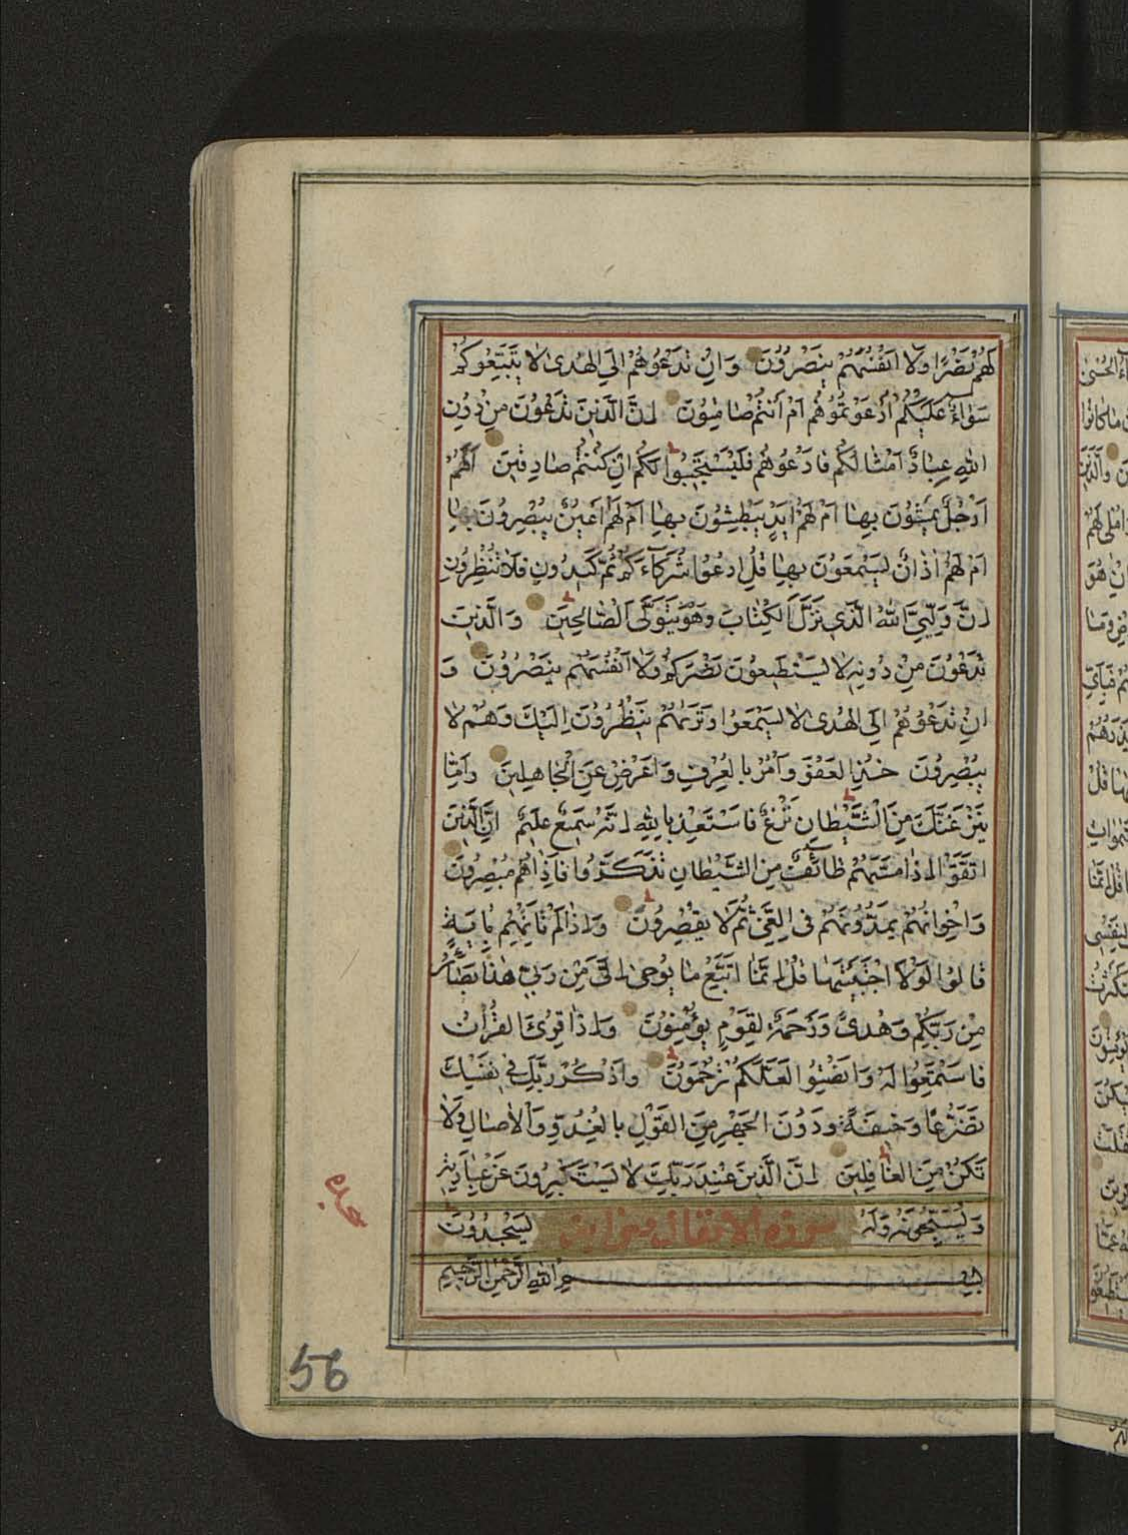 لَهُمْ نَصْرًا وَلَا اَنْفُسَهُمْ يَنْصُرُونَ وَاِنْ تَدْعُوهُمْ اِلَى الْهُدٰى لَا يَتَّبِعُوكُمْ
سَوَاءٌ عَلَيْكُمْ اَدَعَوْتُمُوهُمْ اَمْ اَنْتُمْ صَامِتُونَ اِنَّ الَّذِينَ تَدْعُونَ مِنْ دُونِ
اللّٰهِ عِبَادٌ اَمْثَالُكُمْ فَادْعُوهُمْ فَلْيَسْتَجِيبُوا لَكُمْ اِنْ كُنْتُمْ صَادِقِينَ اَلَهُمْ
اَرْجُلٌ يَمْشُونَ بِهَا اَمْ لَهُمْ اَيْدٍ يَبْطِشُونَ بِهَا اَمْ لَهُمْ اَعْيُنٌ يُبْصِرُونَ بِهَا
اَمْ لَهُمْ اٰذَانٌ يَسْمَعُونَ بِهَا قُلِ ادْعُوا شُرَكَاءَكُمْ ثُمَّ كِيدُونِ فَلَا تُنْظِرُونِ
اِنَّ وَلِيِّيَ اللّٰهُ الَّذِي نَزَّلَ الْكِتَابَ وَهُوَ يَتَوَلَّى الصَّالِحِينَ وَالَّذِينَ
تَدْعُونَ مِنْ دُونِهِ لَا يَسْتَطِيعُونَ نَصْرَكُمْ وَلَا اَنْفُسَهُمْ يَنْصُرُونَ وَ
اِنْ تَدْعُوهُمْ اِلَى الْهُدٰى لَا يَسْمَعُوا وَتَرٰىهُمْ يَنْظُرُونَ اِلَيْكَ وَهُمْ لَا
يُبْصِرُونَ خُذِ الْعَفْوَ وَأْمُرْ بِالْعُرْفِ وَاَعْرِضْ عَنِ الْجَاهِلِينَ وَاِمَّا
يَنْزَغَنَّكَ مِنَ الشَّيْطَانِ نَزْغٌ فَاسْتَعِذْ بِاللّٰهِ اِنَّهُ سَمِيعٌ عَلِيمٌ اِنَّ الَّذِينَ
اتَّقَوْا اِذَا مَسَّهُمْ طَائِفٌ مِنَ الشَّيْطَانِ تَذَكَّرُوا فَاِذَا هُمْ مُبْصِرُونَ
وَاِخْوَانُهُمْ يَمُدُّونَهُمْ فِى الْغَيِّ ثُمَّ لَا يُقْصِرُونَ وَاِذَا لَمْ تَأْتِهِمْ بِاٰيَةٍ
قَالُوا لَوْلَا اجْتَبَيْتَهَا قُلْ اِنَّمَا اَتَّبِعُ مَا يُوحٰى اِلَيَّ مِنْ رَبِّي هٰذَا بَصَائِرُ
مِنْ رَبِّكُمْ وَهُدًى وَرَحْمَةٌ لِقَوْمٍ يُؤْمِنُونَ وَاِذَا قُرِئَ الْقُرْاٰنُ
فَاسْتَمِعُوا لَهُ وَاَنْصِتُوا لَعَلَّكُمْ تُرْحَمُونَ وَاذْكُرْ رَبَّكَ فِي نَفْسِكَ
تَضَرُّعًا وَخِيفَةً وَدُونَ الْجَهْرِ مِنَ الْقَوْلِ بِالْغُدُوِّ وَالْاٰصَالِ وَلَا
تَكُنْ مِنَ الْغَافِلِينَ اِنَّ الَّذِينَ عِنْدَ رَبِّكَ لَا يَسْتَكْبِرُونَ عَنْ عِبَادَتِهِ
وَيُسَبِّحُونَهُ وَلَهُ سورة الانفال يَسْجُدُونَ
بِسْمِ اللّٰهِ الرَّحْمٰنِ الرَّحِيمِ
56